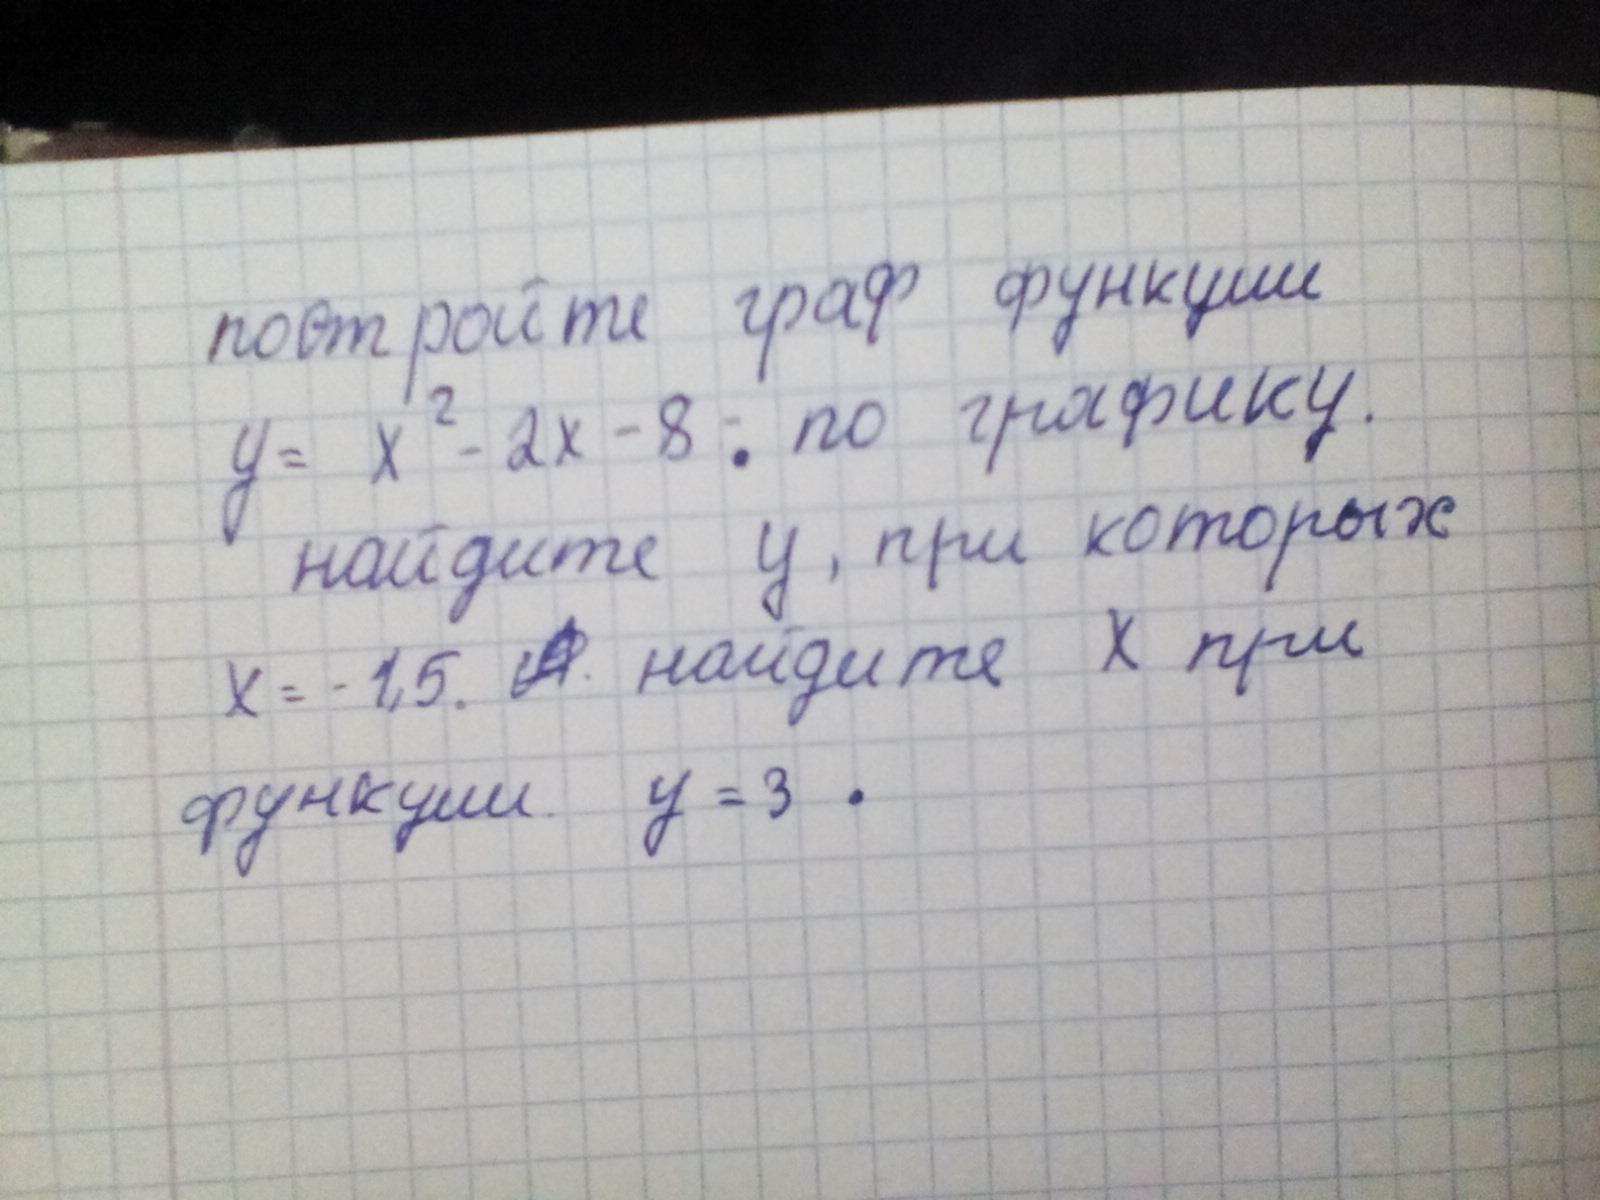 постройте граф функции
y = x² - 2x - 8 : по графику.
найдите y, при которых
x = -1,5. найдите x при
функции. y = 3 .